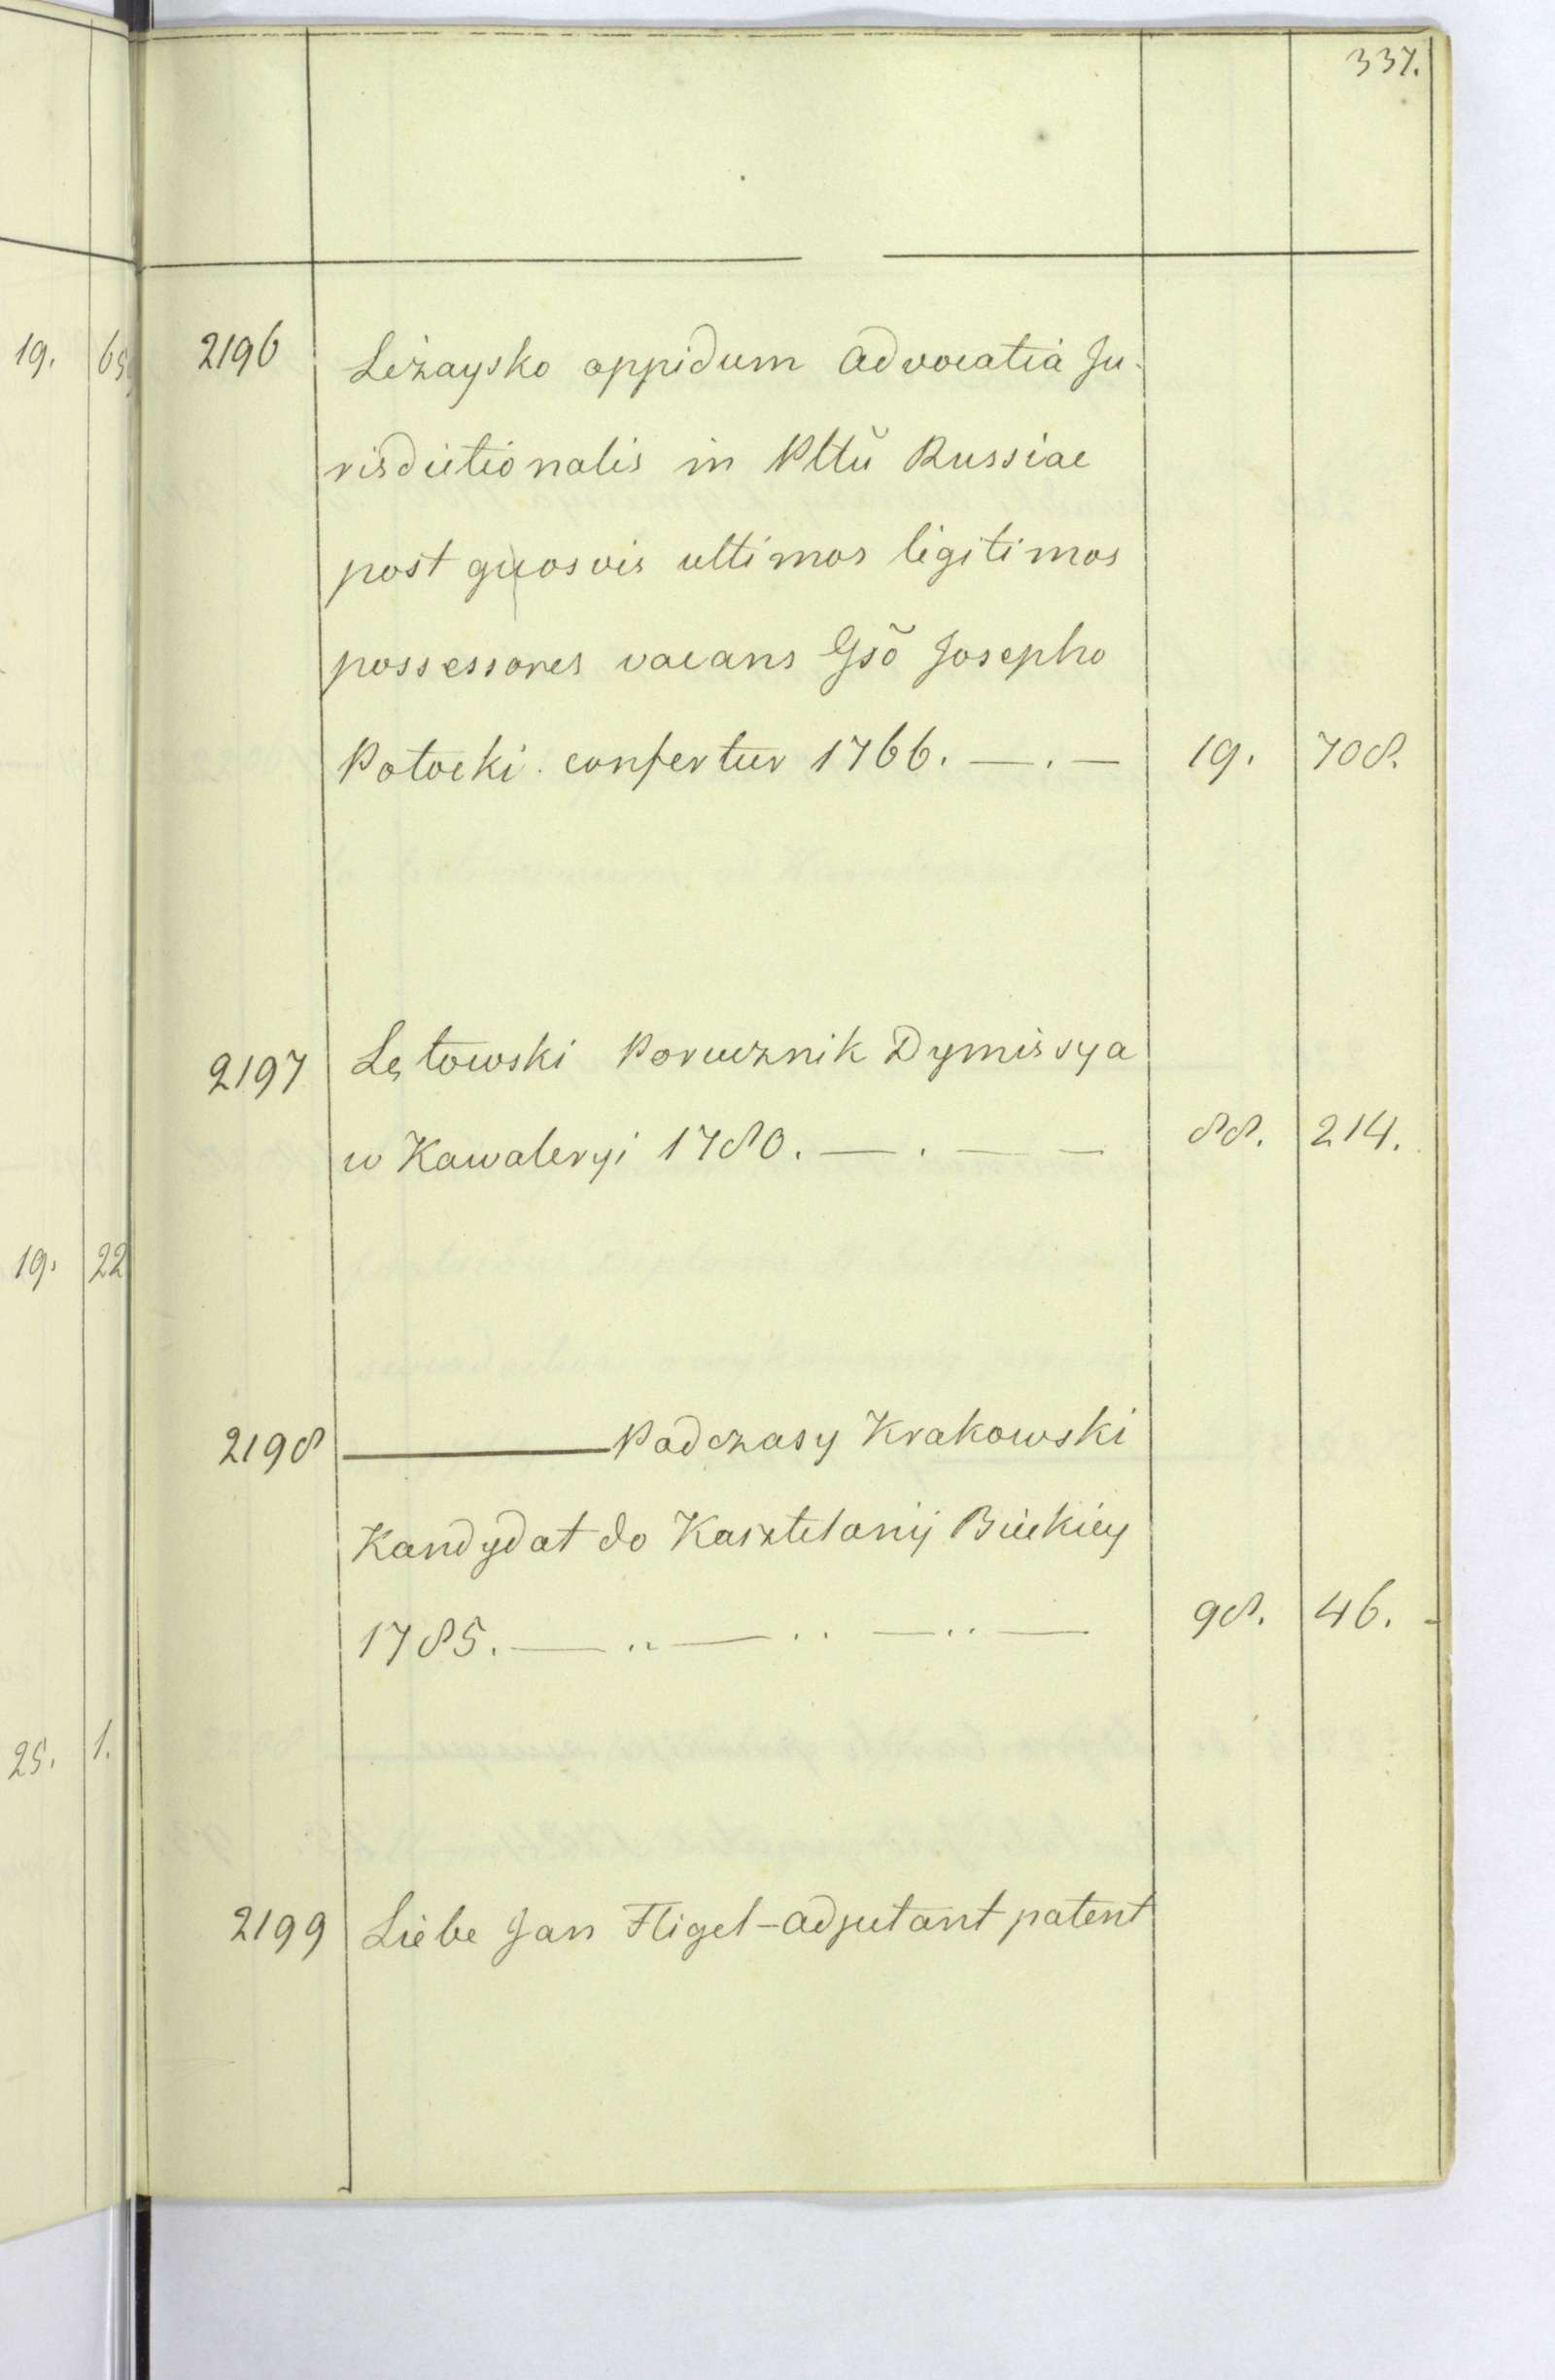 337.
19. 65
2196 Leżaysko oppidum advocatia Ju-
risdictionalis in Plttũ Russiae
post quosvis ultimos legitimos
possessores vacans Gsõ Josepho
Potocki confertur 1766. — . — 19. 708.
2197 Lętowski Porucznik Dymissya
w Kawaleryi 1780. — . — — 88. 214.
19. 22
2198 ——— Podczasy Krakowski
Kandydat do Kasztelanij Bieckiey
1785. — .. — .. — .. — 98. 46.
25. 1.
2199 Liebe Jan Fligel-adjutant patent